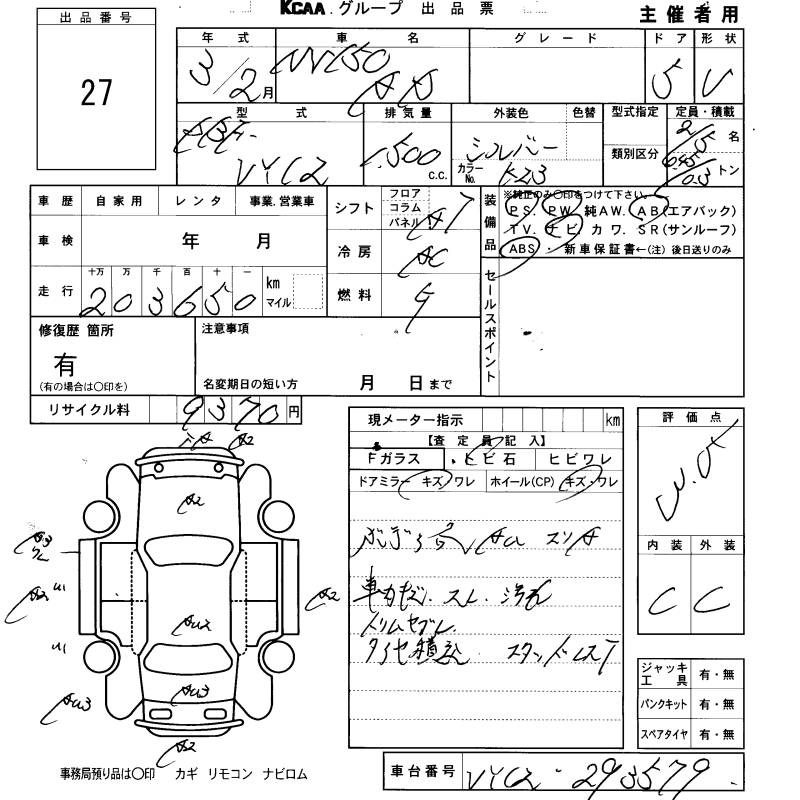 KCAA.グループ 出品票
主催者用
出品番号
27
年式 車名 グレード ドア 形状
3/2月 NV150 AD 5 V
型式 排気量 外装色 色替 型式指定 定員・積載
VYC12 1500 c.c. シルバー カラーNo. K23 類別区分 2/5 名
0.45/0.3 トン
車歴 自家用 レンタ 事業.営業車
車検 年 月
走行 十万 万 千 百 十 一 km マイル
203650
シフト フロア コラム パネル AT
冷房 AC
燃料 G
装備品
※純正のみ〇印をつけて下さい。
PS. PW. 純AW. AB(エアバック)
TV. ナビ カワ. SR(サンルーフ)
ABS ・ 新車保証書←(注)後日送りのみ
セールスポイント
修復歴 箇所
有
(有の場合は〇印を)
注意事項
名変期日の短い方 月 日まで
リサイクル料 9370 円
現メーター指示 km
【査定員記入】
Fガラス ・ヒビ石 ヒビワレ
ドアミラー キズ/ワレ ホイール(CP) キズ・ワレ
車カキズ. スレ. 汚れ
トリムヤブレ
タイヤ積込 スタッドレスT
評価点
内装 外装
C C
ジャッキ工具 有・無
パンクキット 有・無
スペアタイヤ 有・無
A2
A2
A2
A2
AU2
AU3
AU3
A2
U1
U1
事務局預り品は〇印 カギ リモコン ナビロム
車台番号 VYC12-293579